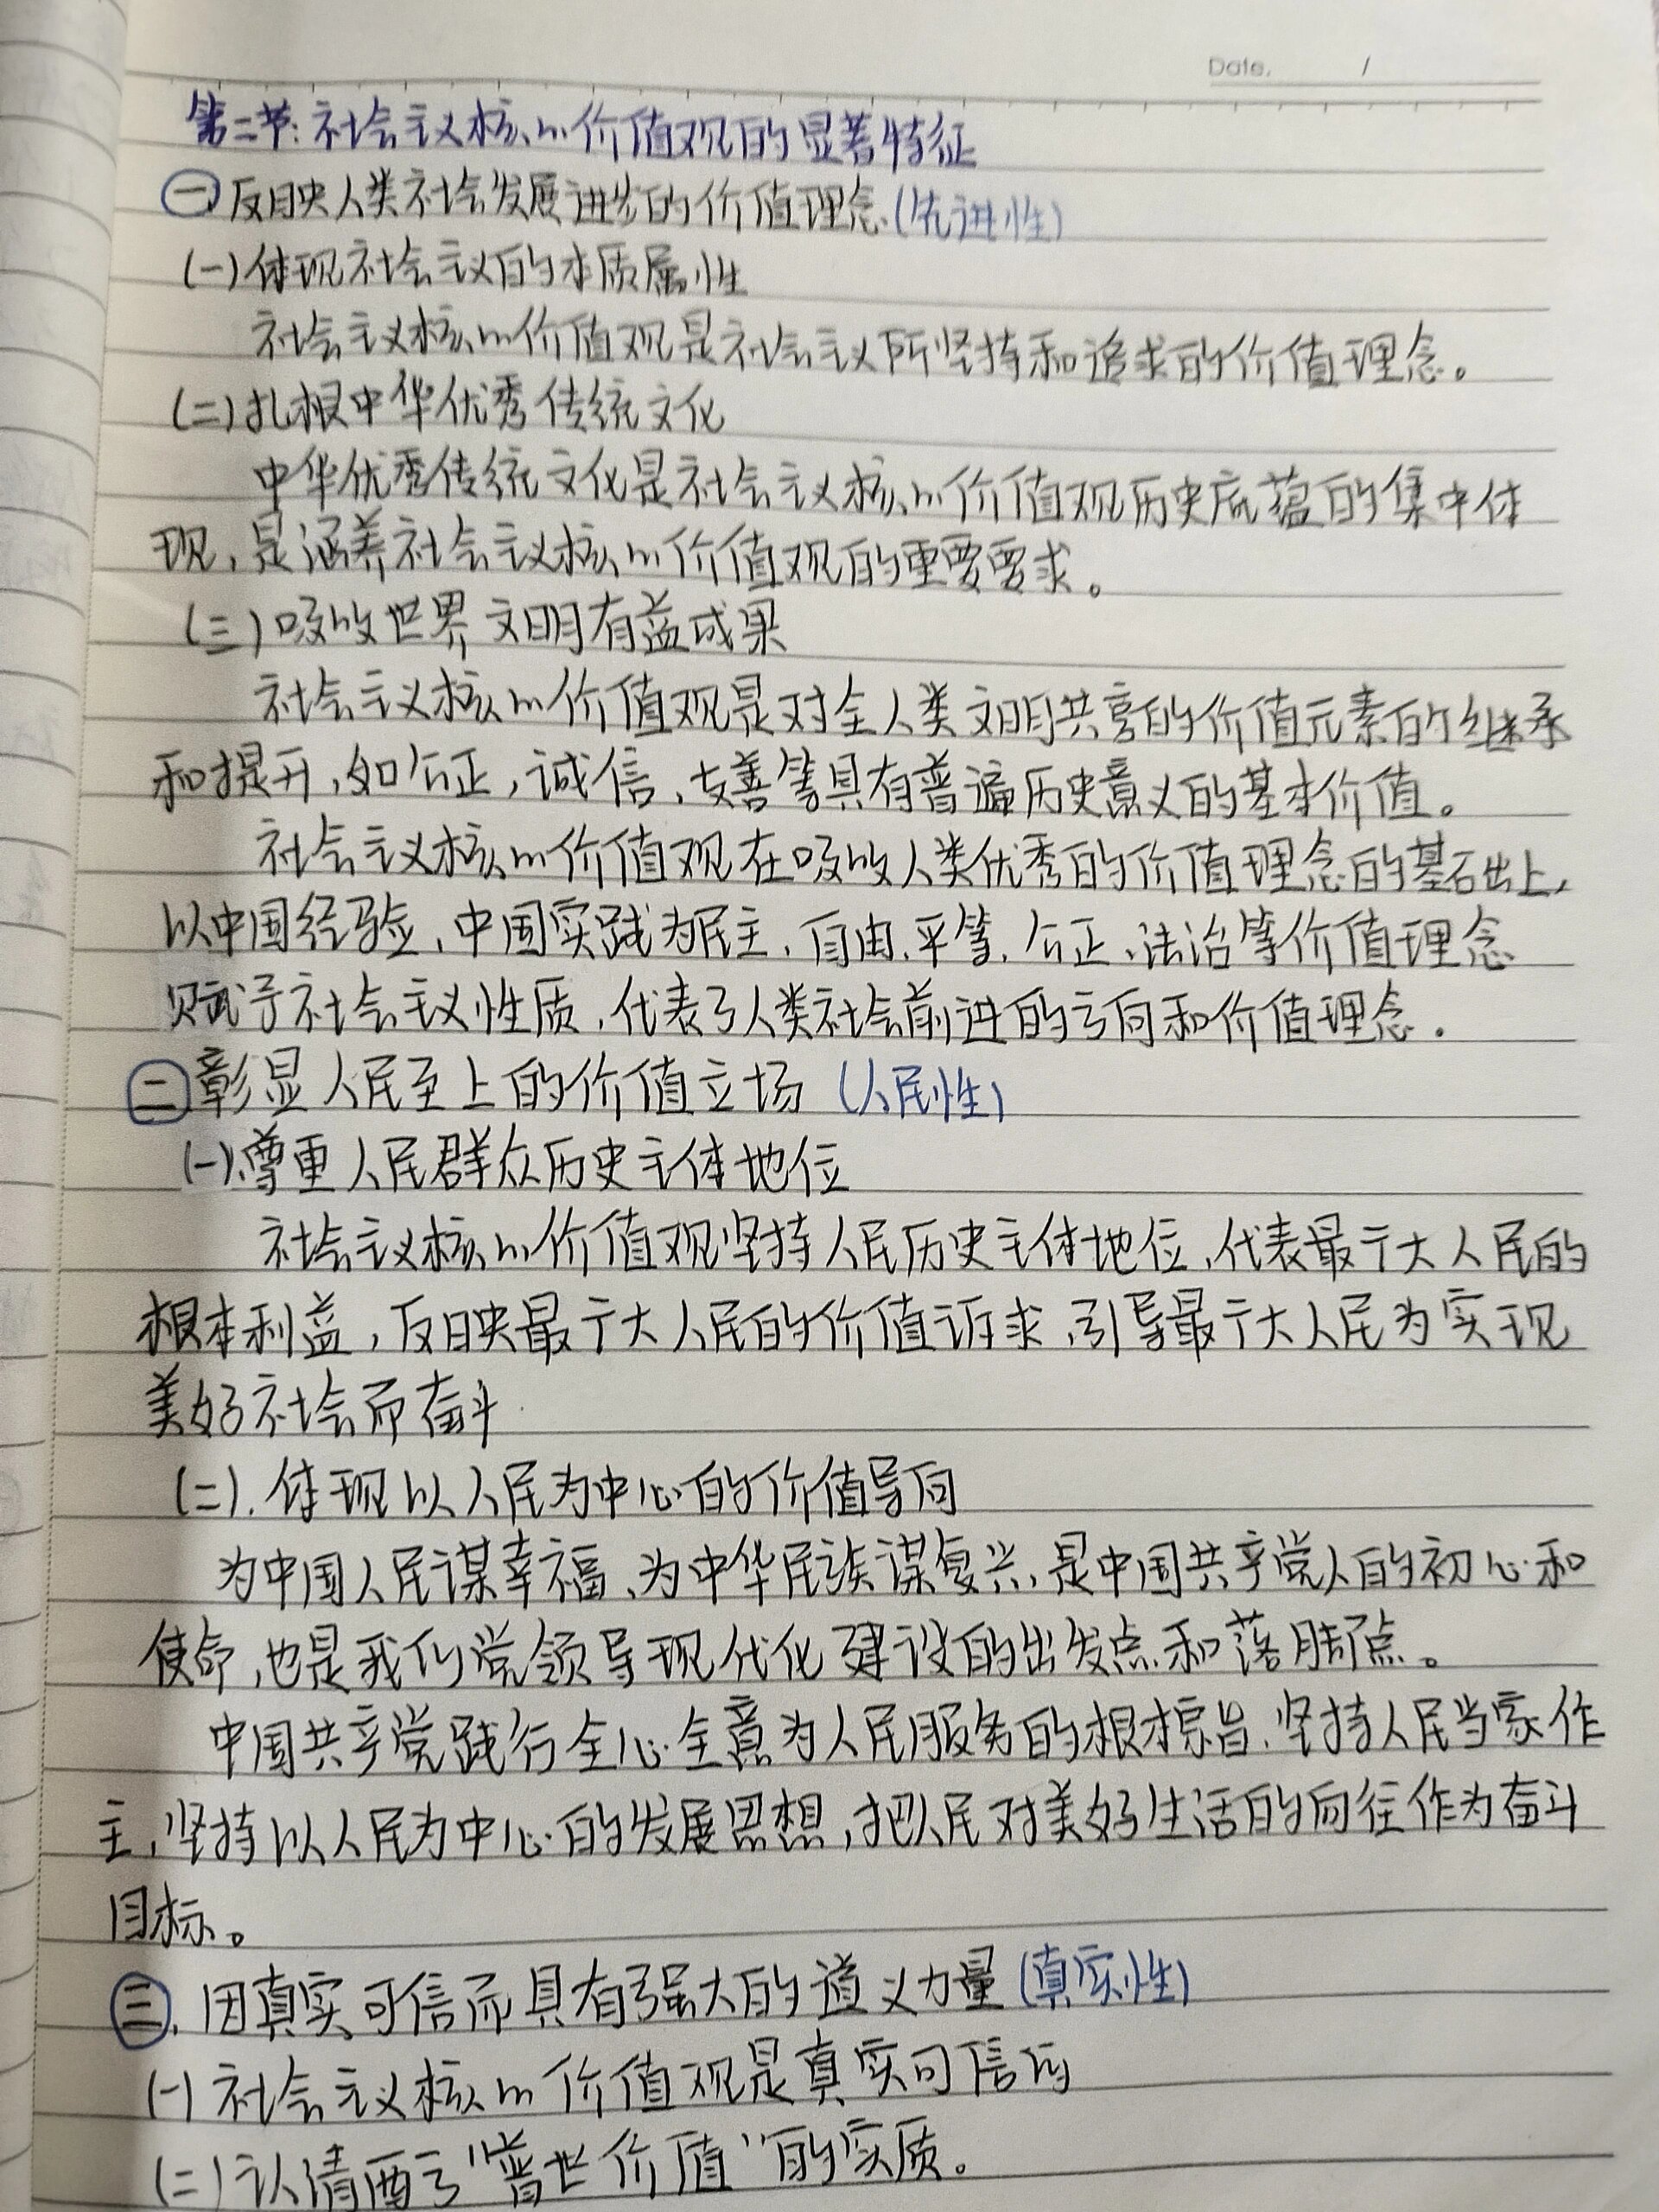 Date. /
第二节:社会主义核心价值观的显著特征
一、反映人类社会发展进步的价值理念(先进性)
(一)体现社会主义的本质属性
社会主义核心价值观是社会主义所坚持和追求的价值理念。
(二)扎根中华优秀传统文化
中华优秀传统文化是社会主义核心价值观历史底蕴的集中体
现,是涵养社会主义核心价值观的重要要求。
(三)吸收世界文明有益成果
社会主义核心价值观是对全人类文明共享的价值元素的继承
和提升,如公正,诚信、友善等具有普遍历史意义的基本价值。
社会主义核心价值观在吸收人类优秀的价值理念的基础上,
以中国经验、中国实践为民主、自由、平等、公正、法治等价值理念
赋予社会主义性质,代表了人类社会前进的方向和价值理念.
二 彰显人民至上的价值立场 (人民性)
(一).尊重人民群众历史主体地位
社会主义核心价值观坚持人民历史主体地位,代表最广大人民的
根本利益,反映最广大人民的价值诉求,引导最广大人民为实现
美好社会而奋斗.
(二).体现以人民为中心的价值导向
为中国人民谋幸福、为中华民族谋复兴,是中国共产党人的初心和
使命,也是我们党领导现代化建设的出发点和落脚点。
中国共产党践行全心全意为人民服务的根本宗旨.坚持人民当家作
主,坚持以人民为中心的发展思想,把人民对美好生活的向往作为奋斗
目标。
三、因真实可信而具有强大的道义力量(真实性)
(一)社会主义核心价值观是真实可信的
(二)认清西方"普世价值"的实质。